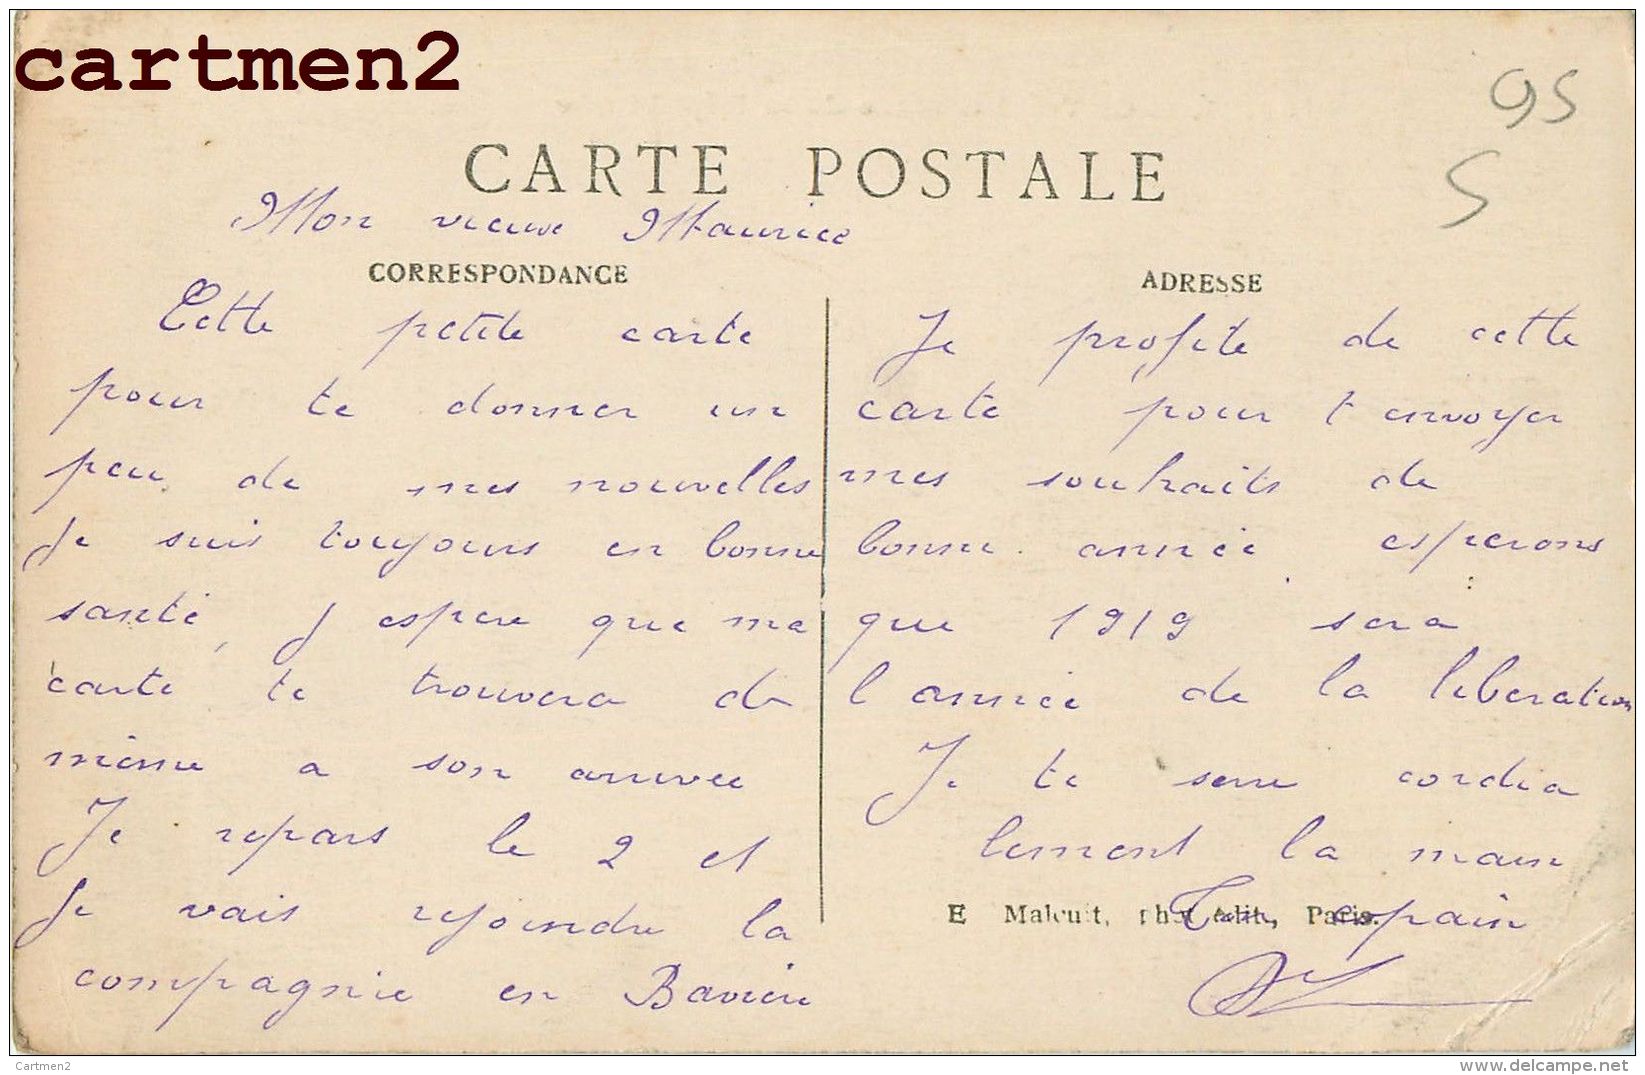 cartmen2
95
S
CARTE POSTALE
Mon vieux Maurice
CORRESPONDANCE
Cette petite carte
pour te donner un
peu de mes nouvelles
Je suis toujours en bonne
santé, j espere que ma
carte te trouvera de
même a son arrivée
Je repars le 2 et
Je vais rejoindre la
compagnie en Baviere
ADRESSE
Je profite de cette
carte pour t envoyer
mes souhaits de
bonne année esperons
que 1919 sera
l année de la liberation
Je te serre cordia
lement la main
E Malcuit, Paris.
Ton copain
Cartmen2
www.delcampe.net